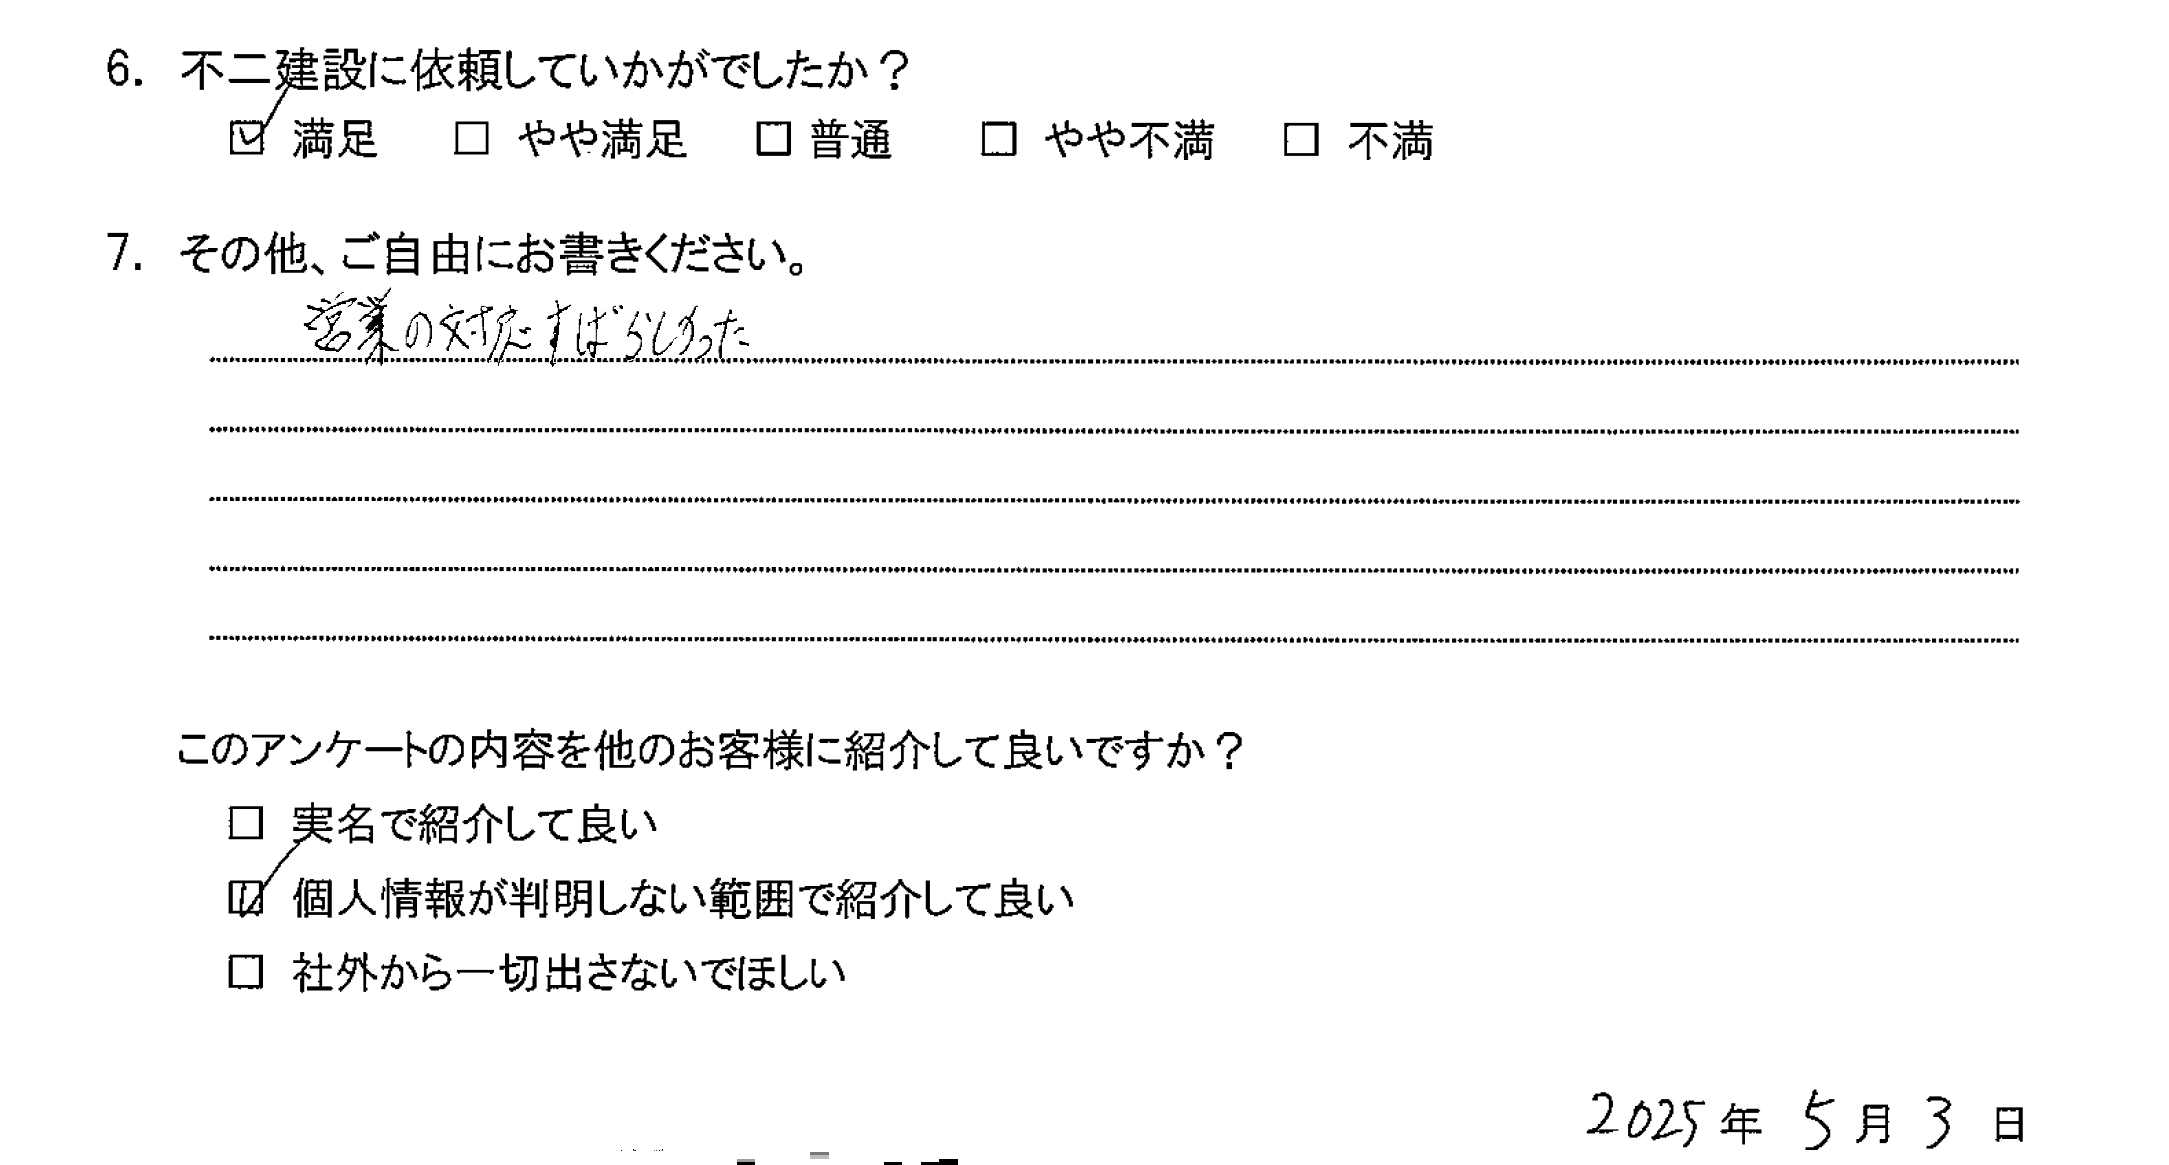 6. 不二建設に依頼していかがでしたか？
☑ 満足 □ やや満足 □ 普通 □ やや不満 □ 不満
7. その他、ご自由にお書きください。
営業の対応すばらしかった
このアンケートの内容を他のお客様に紹介して良いですか？
□ 実名で紹介して良い
☑ 個人情報が判明しない範囲で紹介して良い
□ 社外から一切出さないでほしい
2025年 5月 3日